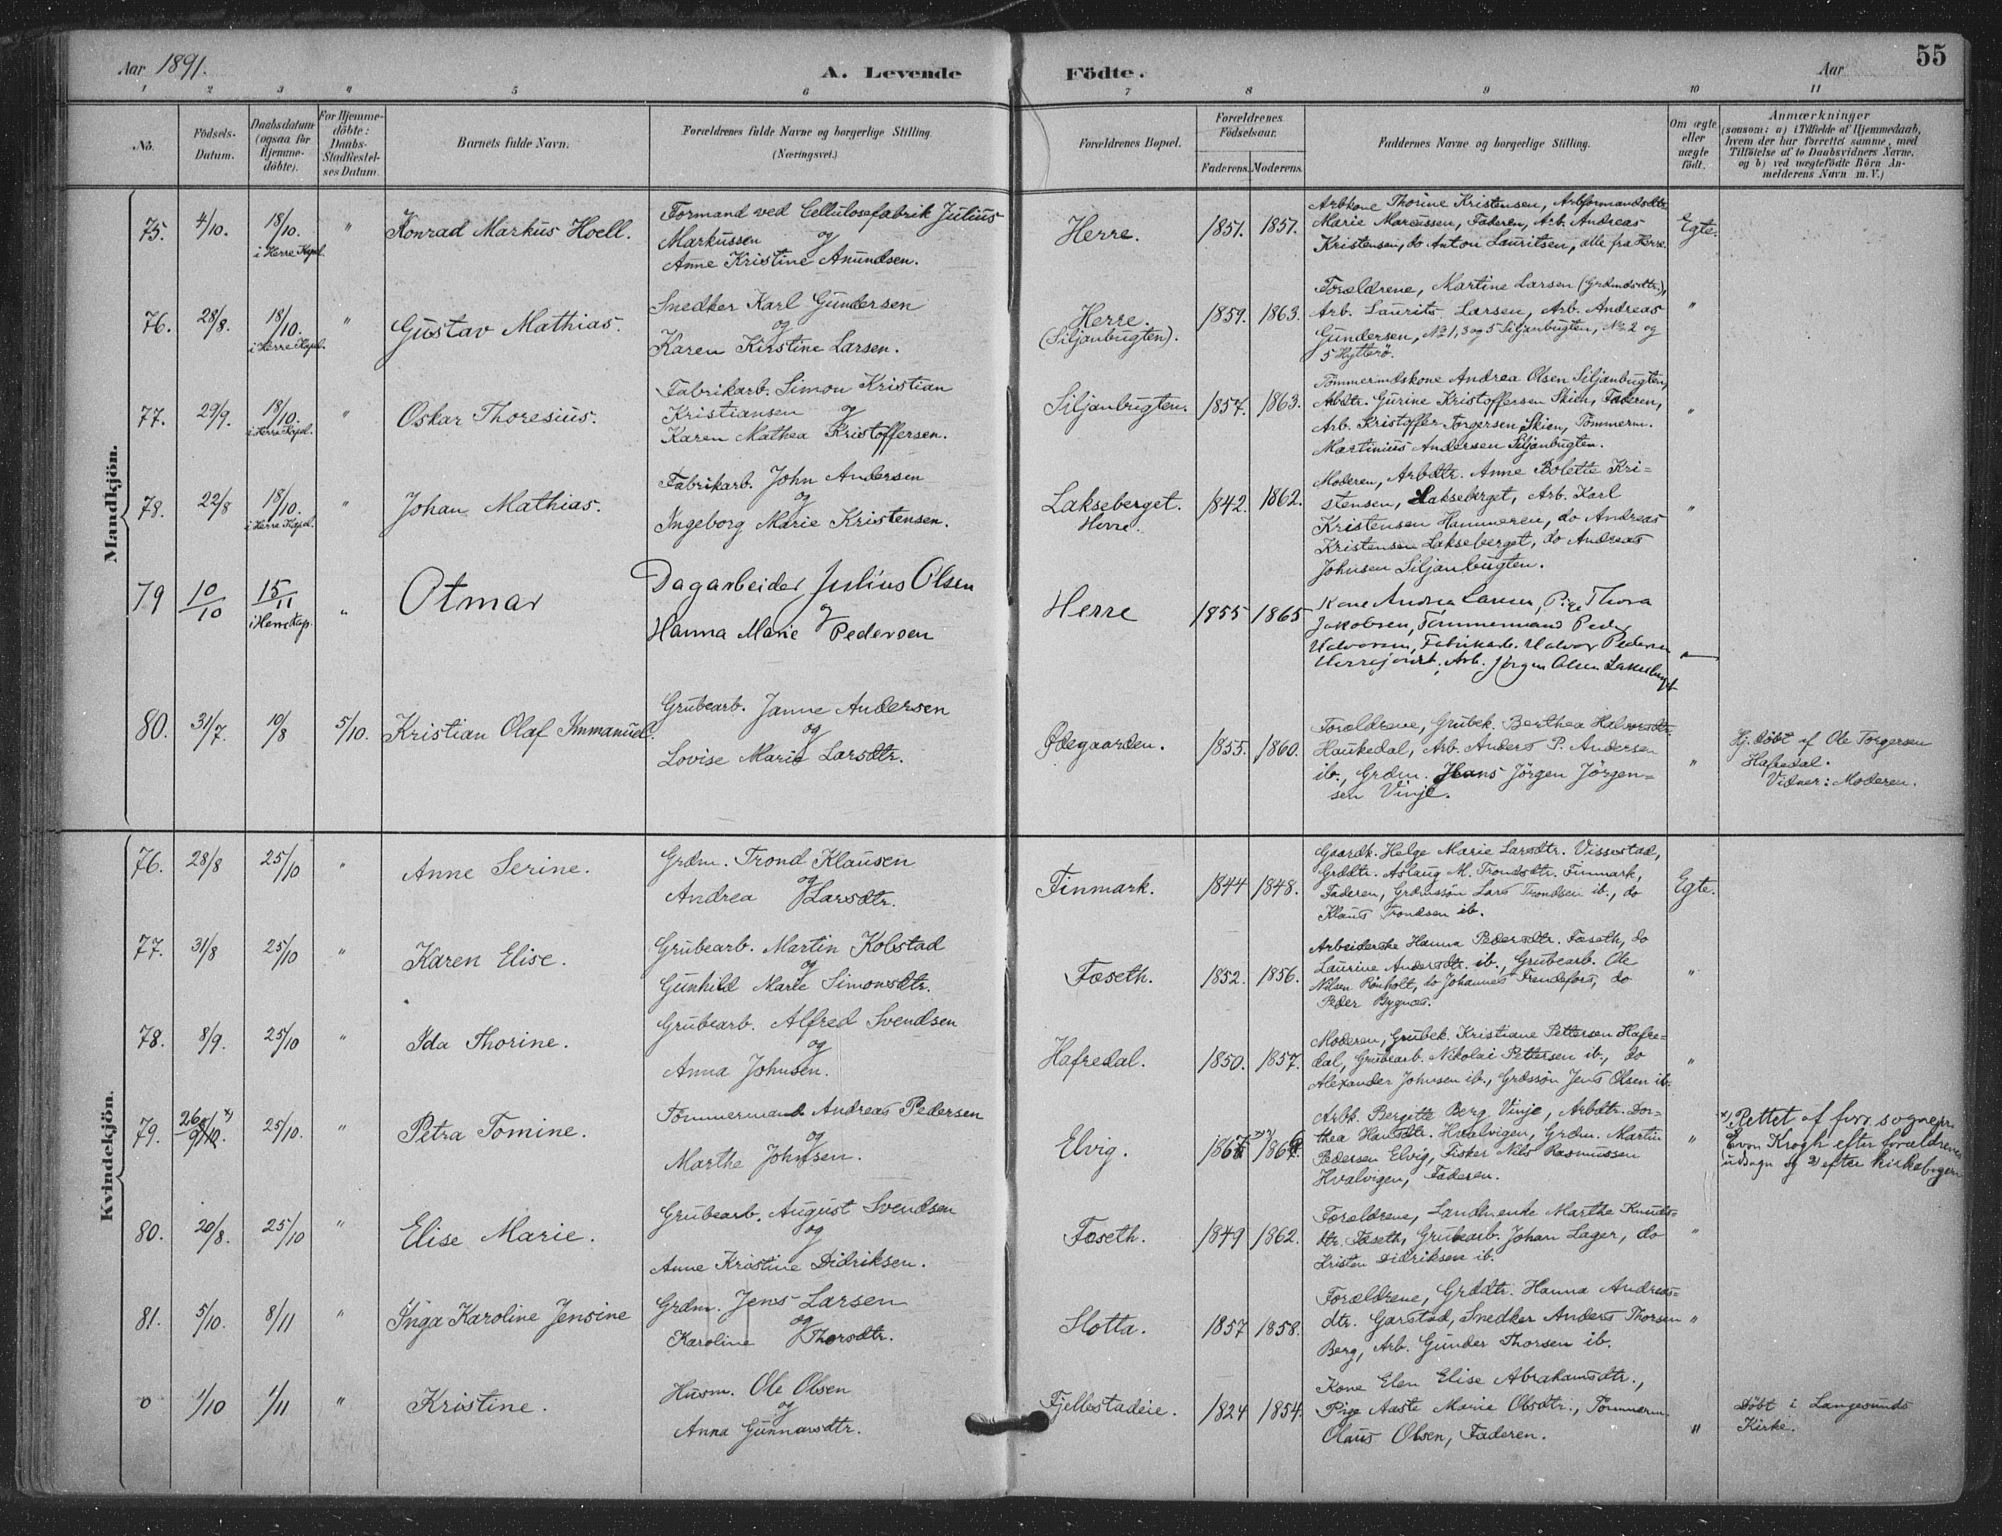 Aar 1891.
A. Levende
Födte.
Aar
55
1 2 3 4 5 6 7 8 9 10 11
No.
Födsels-
Datum.
Daabsdatum
(ogsaa for
Hjemme-
döbte).
For Hjemme-
döbte:
Daabs-
Stadfæstel-
ses Datum.
Barnets fulde Navn.
Forældrenes fulde Navne og borgerlige Stilling.
(Næringsvei.)
Forældrenes Bopæl.
Forældrenes
Födselsaar.
Faderens. Moderens.
Faddernes Navne og borgerlige Stilling.
Om ægte
eller
uægte
født.
Anmærkninger
(saasom: a) i Tilfælde af Hjemmedaab,
hvem der har forrettet samme, med
Tilföielse af to Daabsvidners Navne,
og b) ved uægtefödte Börn An-
melderens Navn m. V.)
Mandkjön.
75. 4/10. 18/10. i Herre Kapel. " Konrad Markus Hoell.
Formand ved Cellulosefabrik Julius
Markussen og
Anne Kristine Amundsen.
Herre. 1851. 1857.
Arbkone Thorine Kristensen, Arbformandsdtr
Marie Marcussen, Faderen, Arb. Andreas
Kristensen, do Anton Lauritsen, alle fra Herre.
Egte.
76. 28/8. 18/10. i Herre Kapel. " Gustav Mathias.
Snedker Karl Gundersen
og
Karen Kirstine Larsen.
Herre.
(Siljanbugten).
1859. 1863.
Forældrene, Martine Larsen (Grdmdsdtr),
Arb. Laurits Larsen, Arb. Andreas
Gundersen, No 1, 3 og 5 Siljanbugten, No 2 og
5 Hytterö.
"
77. 29/9. 18/10. i Herre Kapel. " Oskar Thoresius.
Fabrikarb. Simon Kristian
Kristiansen og
Karen Mathea Kristoffersen.
Siljanbugten. 1857. 1863.
Tömmermdskone Andrea Olsen Siljanbugten,
Arbdtr. Gurine Kristoffersen Skien, Faderen,
Arb. Kristoffer Torgersen Skien, Tömmerm.
Martinius Andersen Siljanbugten.
"
78. 22/8 18/10. i Herre Kapel. " Johan Mathias.
Fabrikarb. John Andersen
og
Ingeborg Marie Kristensen.
Lakseberget.
Herre.
1842. 1862.
Moderen, Arbdtr. Anne Bolette Kri-
stensen, Lakseberget, Arb. Karl
Kristensen Hammeren, do Andreas
Kristensen Lakseberget, do Andreas
Johnsen Siljanbugten.
"
79 10/10 15/11 i Herre Kap. " Otmar
Dagarbeider Julius Olsen
og
Hanna Marie Pedersen
Herre 1855 1865
Kone Andrea Larsen, Pige Thora
Jakobsen, Tömmermand Peder
Halvorsen, Fabrikarb. Halvor Pedersen
Herrefjordt., Arb. Jörgen Olsen Lakseberget
"
80. 31/7. 10/8 5/10. Kristian Olaf Immanuel.
Grubearb. Janne Andersen
og
Lovise Marie Larsdtr.
Ødegaarden. 1855. 1860.
Forældrene, Grubek. Berthea Halvorsdtr.
Haukedal, Arb. Anders P. Andersen
ib., Grdm. Hans Jörgen Jörgen-
sen Vinje.
"
Hj. döbt af Ole Torgersen
Hafredal.
Vidner: Moderen.
Kvindekjön.
76. 28/8 25/10 " Anne Serine.
Grdm. Trond Klausen
og
Andrea Larsdtr.
Finmark. 1844 1848.
Gaardk. Helge Marie Larsdtr. Vissestad,
Grddtr. Aslaug M. Trondsdtr. Finmark,
Faderen, Grdmssön Lars Trondsen ib., do
Klaus Trondsen ib.
Egte.
77. 31/8 25/10 " Karen Elise.
Grubearb. Martin Kolstad
og
Gunhild Marie Simonsdtr.
Fæseth. 1852. 1856.
Arbeiderske Hanna Pedersdtr. Fæseth, do
Laurine Andersdtr. ib., Grubearb. Ole
Nilsen Rönholt, do Johannes Trendefors, do
Peder Bygnæs.
"
78. 8/9. 25/10 " Ida Thorine.
Grubearb. Alfred Svendsen
og
Anna Johnsen.
Hafredal. 1850. 1857.
Moderen, Grubek. Kristiane Pettersen Hafre-
dal, Grubearb. Nikolai Pettersen ib., do
Alexander Johnsen ib., Grdssön Jens Olsen ib.
"
79. 26/9 25/10. " Petra Tomine.
Tömmermand Andreas Pedersen
og
Marthe Johnsen.
Elvig. 1867 1866.
Arbk. Bergitte Berg Vinje, Arbdtr. Dor-
thea Hansdtr. Hvalvigen, Grdm. Martin
Pedersen Elvig, Fisker Nils Rasmussen
Hvalvigen, Faderen.
"
x) Rettet af forr. sognepr.
Even Krogh efter forældrenes
udsagn og 2) efter kirkebogen
80. 20/8. 25/10 " Elise Marie.
Grubearb. August Svendsen
og
Anne Kristine Didriksen.
Fæseth. 1849 1862.
Forældrene, Landhende Marthe Knuds-
dtr. Fæseth, Grubearb. Johan Lager, do
Kristen Didriksen ib.
"
81. 5/10. 8/11 " Inga Karoline Jensine
Grdm. Jens Larsen
og
Karoline Thorsdtr.
Slotta. 1857 1858.
Forældrene, Grddtr. Hanna Andreas-
dtr. Garstad, Snedker Anders Thorsen
Berg, Arb. Gunder Thorsen ib.
"
0 1/10 1/11 " Kristine.
Husm. Ole Olsen
og
Anna Gunnarsdtr.
Fjellestadeie. 1824 1854.
Kone Elen Elise Abrahamsdtr.,
Pige Aaste Marie Olsdtr., Tömmerm.
Olaus Olsen, Faderen.
"
Döbt i Langesunds
Kirke.